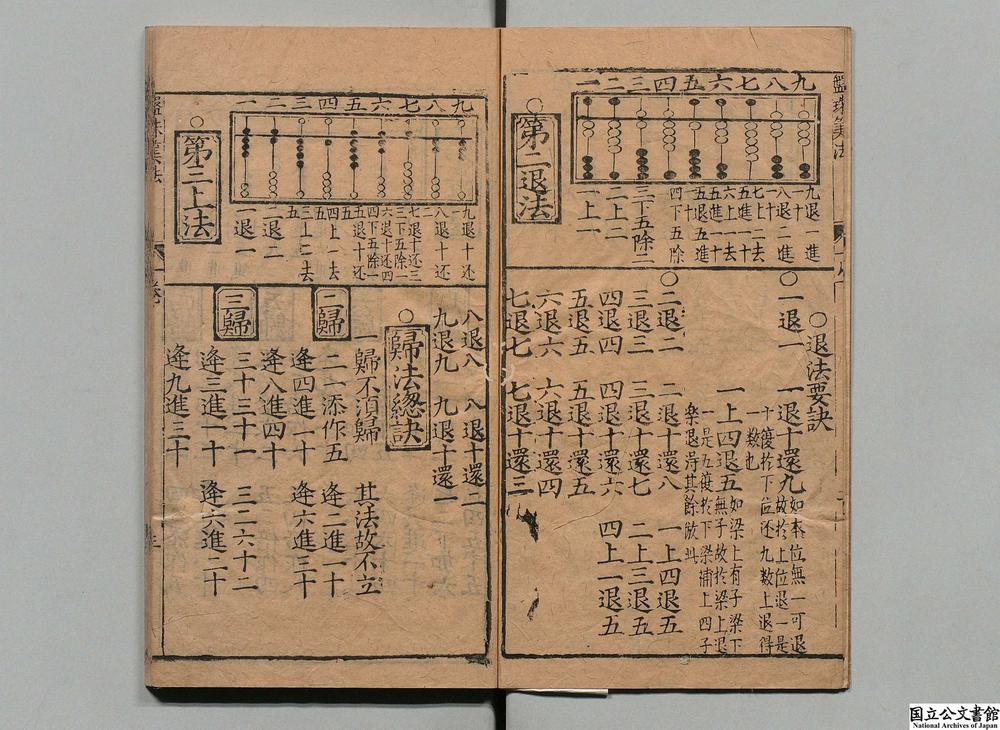 盤珠算法
九八七六五四三二一
第二退法
九退一進一十
八退二進一十
七上二去五進一十
六上一去五進一十
五退五進一十
四下五除一
三下五除二
一上二
一上一
○退法要訣
○一退一 一退十還九如本位無一可退故於上位退一是十復於下位还九數上退得一數也
一上四退五如梁上有子梁下無子故於梁上退一是五復於下梁補上四子
○二退二 二退十還八 一上四退五
三退三 三退十還七 二上三退五
四退四 四退十還六 四上一退五
五退五 五退十還五
六退六 六退十還四
七退七 七退十還三
九八七六五四三二一
第三上法
九退十还一
八退十还二
七退十还三
三下五除二
六退十还四
四下五除一
五退十还五
四上一去五
三上二去五
二退二
一退一
八退八 八退十還二
九退九 九退十還一
○歸法總訣
一歸不須歸 其法故不立
二歸
二一添作五 逢二進一十
逢四進二十 逢六進三十
逢八進四十
三歸
三一三十一 三二六十二
逢三進一十 逢六進二十
逢九進三十
盤珠算法
卷
国立公文書館
National Archives of Japan